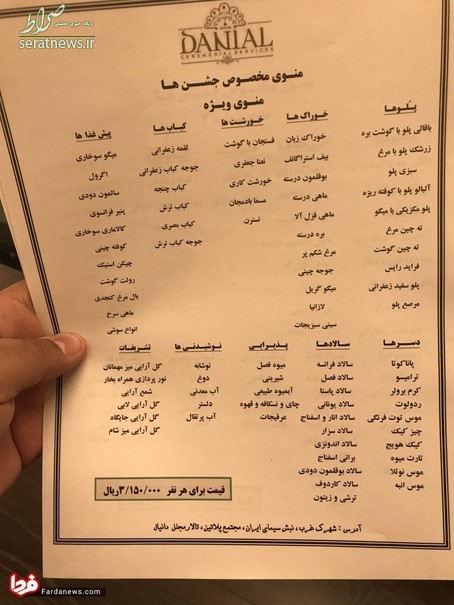 صراط
پایگاه خبری تحلیلی
seratnews.ir
DANIAL
CEREMONIAL SERVICES
منوی مخصوص جشن ها
منوی ویژه
پلوها
باقالی پلو با گوشت بره
زرشک پلو با مرغ
سبزی پلو
آلبالو پلو با کوفته ریزه
پلو مکزیکی با میگو
ته چین مرغ
ته چین گوشت
فراید رایس
پلو سفید زعفرانی
مرصع پلو
خوراک ها
خوراک زبان
بیف استراگانف
بوقلمون درسته
ماهی درسته
ماهی قزل آلا
بره درسته
مرغ شکم پر
جوجه چینی
میگو گریل
لازانیا
سینی سبزیجات
خورشت ها
فسنجان با گوشت
نعنا جعفری
خورشت کاری
مسما بادمجان
نسترن
کباب ها
لقمه زعفرانی
جوجه کباب زعفرانی
کباب چنجه
کباب ترش
کباب مصری
جوجه کباب ترش
پیش غذا ها
میگو سوخاری
اگرول
سالمون دودی
پنیر فرانسوی
کالاماری سوخاری
کوفته چینی
چیکن استیک
رولت گوشت
بال مرغ کنجدی
ماهی سرخ
انواع سوشی
دسرها
پاناکوتا
ترامیسو
کرم برولر
ردولوت
موس توت فرنگی
چیز کیک
کیک هویج
تارت میوه
موس نوتلا
موس انبه
سالادها
سالاد فرانسه
سالاد فصل
سالاد پاستا
سالاد یونانی
سالاد انار و اسفناج
سالاد سزار
سالاد اندونزی
برانی اسفناج
سالاد بوقلمون دودی
سالاد کاردوف
ترشی و زیتون
پذیرایی
میوه فصل
شیرینی
آبمیوه طبیعی
چای و نسکافه و قهوه
عرقیجات
نوشیدنی ها
نوشابه
دوغ
آب معدنی
دلستر
آب پرتقال
تشریفات
گل آرایی میز مهمانان
نور پردازی همراه بخار
شمع آرایی
گل آرایی لابی
گل آرایی جایگاه
گل آرایی میز شام
قیمت برای هر نفر ۳/۱۵۰/۰۰۰ریال
آدرس : شهرک غرب، نبش سیمای ایران، مجتمع پلاتین، تالار مجلل دانیال
فردا
Fardanews.com